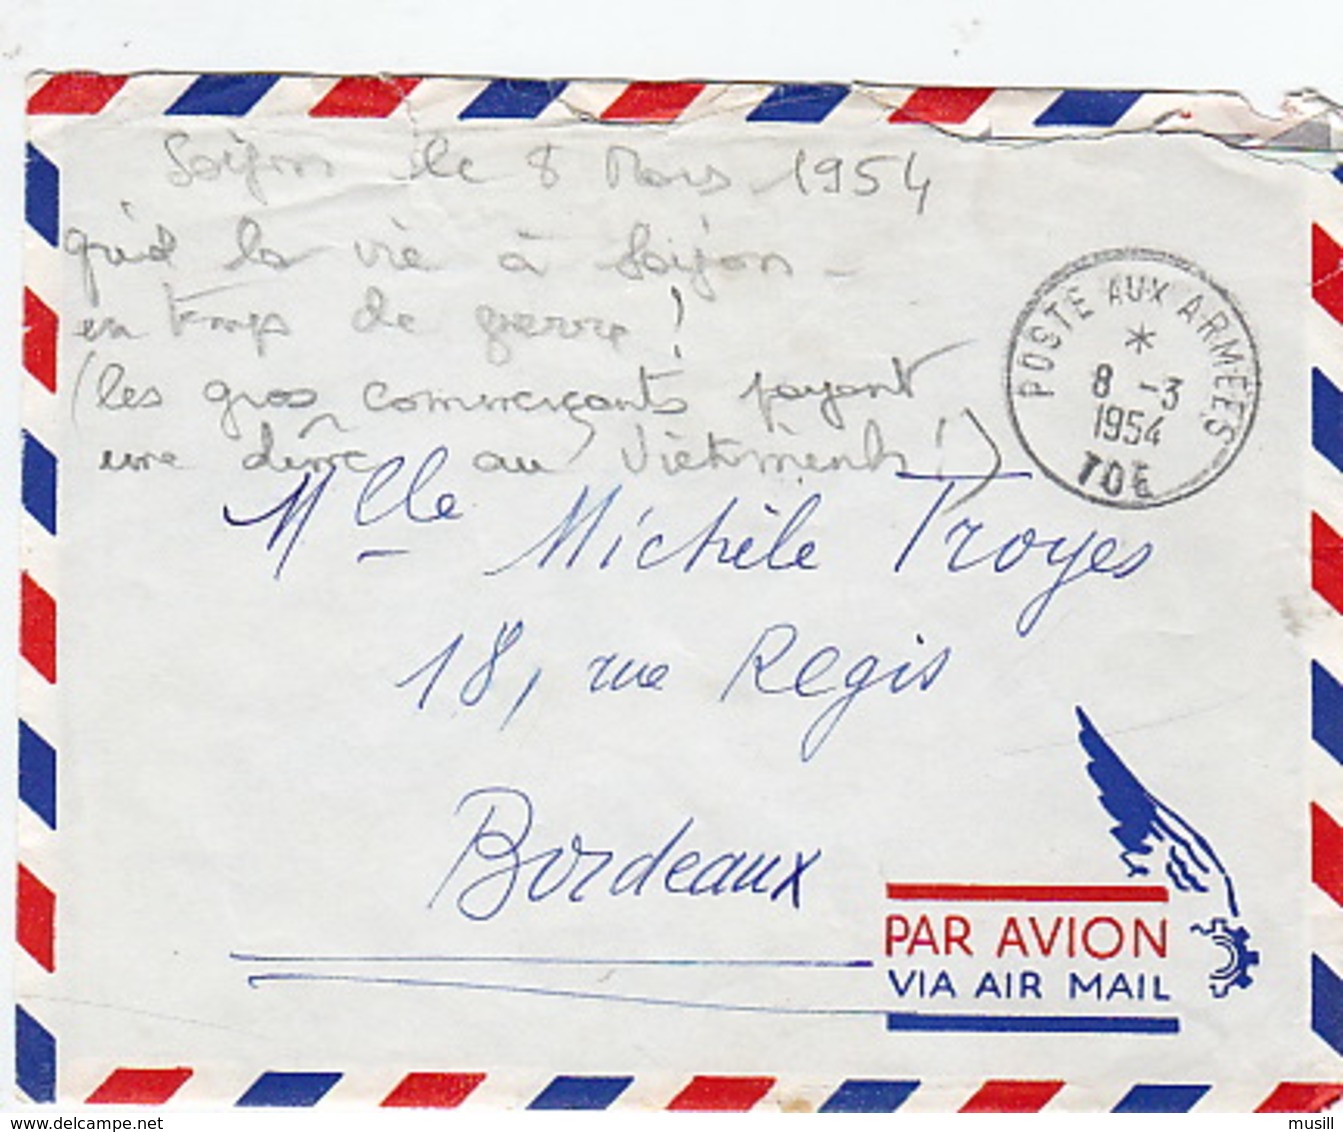 Saïgon le 8 Mars 1954
la vie à Saïgon -
en temps de guerre !
(les gros commerçants payant
une dîme au Vietminh !)
POSTE AUX ARMÉES
*
8 -3
1954
TOE
Mlle Michèle Troyes
18, rue Regis
Bordeaux
PAR AVION
VIA AIR MAIL
delcampe.net
musill